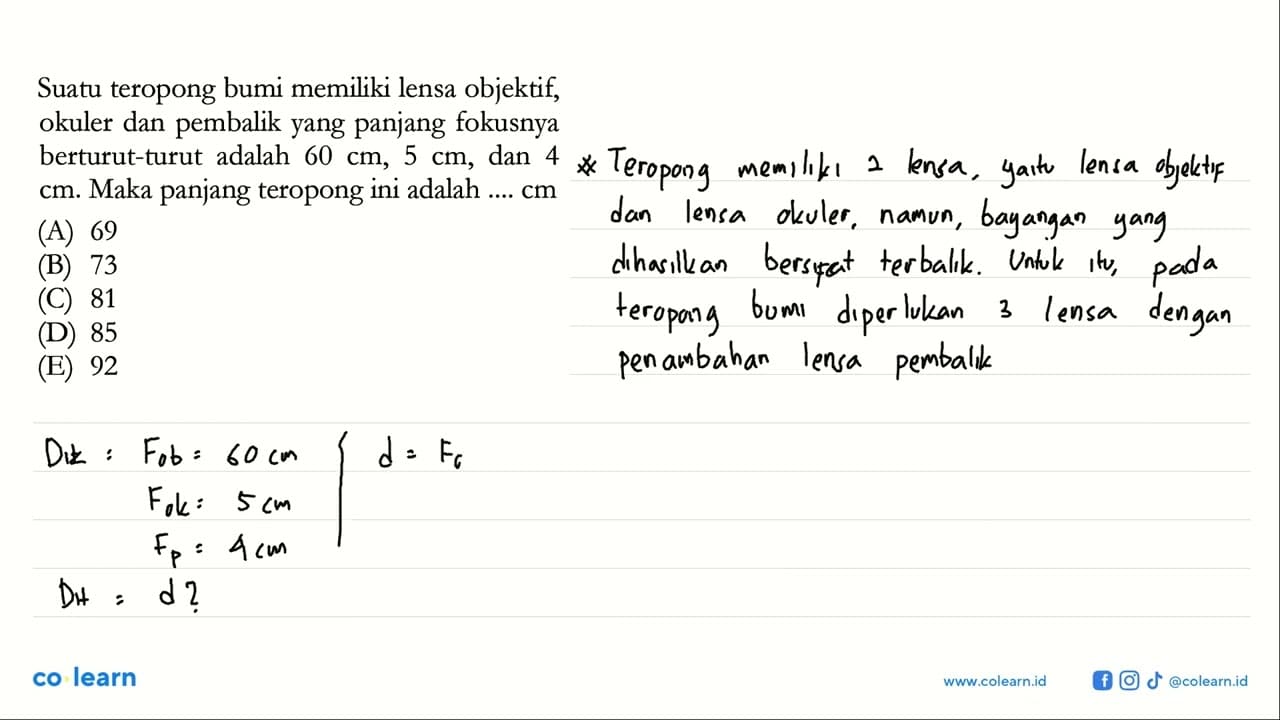 Suatu teropong bumi memiliki lensa objektif,
okuler dan pembalik yang panjang fokusnya
berturut-turut adalah 60 cm, 5 cm, dan 4
cm. Maka panjang teropong ini adalah .... cm
(A) 69
(B) 73
(C) 81
(D) 85
(E) 92
* Teropong memiliki 2 lensa, yaitu lensa objektif
dan lensa okuler, namun, bayangan yang
dihasilkan bersifat terbalik. Untuk itu, pada
teropong bumi diperlukan 3 lensa dengan
penambahan lensa pembalik
Dik : Fob = 60 cm
Fok = 5 cm
Fp = 4 cm
Dit = d?
d = F
co learn
www.colearn.id
@colearn.id